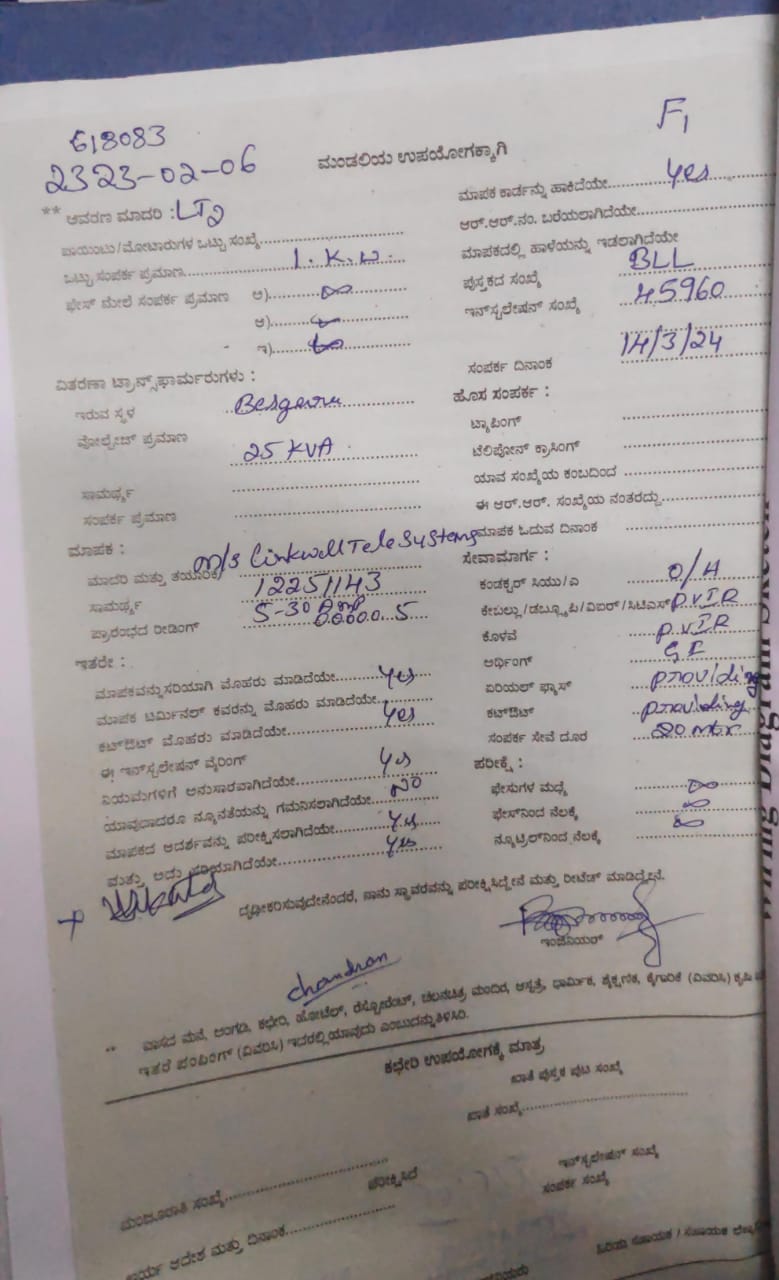 618083
F1
2323-02-06
ಮಂಡಲಿಯ ಉಪಯೋಗಕ್ಕಾಗಿ
** ಆವರಣ ಮಾದರಿ : LT2
ಪಾಯಿಂಟು/ಮೋಟಾರುಗಳ ಒಟ್ಟು ಸಂಖ್ಯೆ
ಒಟ್ಟು ಸಂಪರ್ಕ ಪ್ರಮಾಣ 1.K.W.
ಫೇಸ್ ಮೇಲೆ ಸಂಪರ್ಕ ಪ್ರಮಾಣ ಅ)
ಆ)
ಇ)
ವಿತರಣಾ ಟ್ರಾನ್ಸ್‌ಫಾರ್ಮರುಗಳು :
ಇರುವ ಸ್ಥಳ
ವೋಲ್ಟೇಜ್ ಪ್ರಮಾಣ 25 KVA
ಸಾಮರ್ಥ್ಯ
ಸಂಪರ್ಕ ಪ್ರಮಾಣ
ಮಾಪಕ :
ಮಾದರಿ ಮತ್ತು ತಯಾರಿಕೆ M/s Linkwell Tele Systems
12251143
ಸಾಮರ್ಥ್ಯ 5-30 Amp
ಪ್ರಾರಂಭದ ರೀಡಿಂಗ್ 00000.5
ಇತರೇ :
ಮಾಪಕವನ್ನು ಸರಿಯಾಗಿ ಮೊಹರು ಮಾಡಿದೆಯೇ Yes
ಮಾಪಕ ಟರ್ಮಿನಲ್ ಕವರನ್ನು ಮೊಹರು ಮಾಡಿದೆಯೇ
ಕಟ್‌ಔಟ್ ಮೊಹರು ಮಾಡಿದೆಯೇ Yes
ಈ ಇನ್‌ಸ್ಟಲೇಷನ್ ವೈರಿಂಗ್
ನಿಯಮಗಳಿಗೆ ಅನುಸಾರವಾಗಿದೆಯೇ Yes
ಯಾವುದಾದರೂ ನ್ಯೂನತೆಯನ್ನು ಗಮನಿಸಲಾಗಿದೆಯೇ NO
ಮಾಪಕದ ಆದರ್ಶವನ್ನು ಪರೀಕ್ಷಿಸಲಾಗಿದೆಯೇ Yes
ಮತ್ತು ಅದು ಸರಿಯಾಗಿದೆಯೇ Yes
ಮಾಪಕ ಕಾರ್ಡನ್ನು ಹಾಕಿದೆಯೇ Yes
ಆರ್.ಆರ್.ನಂ. ಬರೆಯಲಾಗಿದೆಯೇ
ಮಾಪಕದಲ್ಲಿ ಹಾಳೆಯನ್ನು ಇಡಲಾಗಿದೆಯೇ
ಪುಸ್ತಕದ ಸಂಖ್ಯೆ BLL
ಇನ್‌ಸ್ಟಲೇಷನ್ ಸಂಖ್ಯೆ 45960
ಸಂಪರ್ಕ ದಿನಾಂಕ 14/3/24
ಹೊಸ ಸಂಪರ್ಕ :
ಟ್ಯಾಪಿಂಗ್
ಟೆಲಿಫೋನ್ ಕ್ರಾಸಿಂಗ್
ಯಾವ ಸಂಖ್ಯೆಯ ಕಂಬದಿಂದ
ಈ ಆರ್.ಆರ್. ಸಂಖ್ಯೆಯ ನಂತರದ್ದು
ಮಾಪಕ ಓದುವ ದಿನಾಂಕ
ಸೇವಾಮಾರ್ಗ :
ಕಂಡಕ್ಟರ್ ಸಿಯು/ಎ O/H
ಕೇಬಲ್ಲು/ಡಬ್ಲ್ಯೂಪಿ/ವಿಐಆರ್/ಸಿಟಿಎಸ್ P.VIR
ಕೊಳವೆ P.VIR
ಅರ್ಥಿಂಗ್ GI
ಏರಿಯಲ್ ಫ್ಯೂಸ್ providing
ಕಟ್‌ಔಟ್ providing
ಸಂಪರ್ಕ ಸೇವೆ ದೂರ 20 mtr
ಪರೀಕ್ಷೆ :
ಫೇಸುಗಳ ಮಧ್ಯೆ
ಫೇಸ್‌ನಿಂದ ನೆಲಕ್ಕೆ
ನ್ಯೂಟ್ರಲ್‌ನಿಂದ ನೆಲಕ್ಕೆ
ದೃಢೀಕರಿಸುವುದೇನೆಂದರೆ, ನಾನು ಸ್ಥಾವರವನ್ನು ಪರೀಕ್ಷಿಸಿದ್ದೇನೆ ಮತ್ತು ರೀಟೆಡ್ ಮಾಡಿದ್ದೇನೆ.
ಇಂಜಿನಿಯರ್
chandran
** ವಾಸದ ಮನೆ, ಅಂಗಡಿ, ಕಛೇರಿ, ಹೋಟೆಲ್, ರೆಸ್ಟೋರೆಂಟ್, ಚಲನಚಿತ್ರ ಮಂದಿರ, ಆಸ್ಪತ್ರೆ, ಧಾರ್ಮಿಕ, ಶೈಕ್ಷಣಿಕ, ಕೈಗಾರಿಕೆ (ವಿವರಿಸಿ) ಕೃಷಿ
ಇತರೆ ಪಂಪಿಂಗ್ (ವಿವರಿಸಿ) ಇದರಲ್ಲಿ ಯಾವುದು ಎಂಬುದನ್ನು ತಿಳಿಸಿರಿ.
ಕಛೇರಿ ಉಪಯೋಗಕ್ಕೆ ಮಾತ್ರ
ಖಾತೆ ಪುಸ್ತಕ ಪುಟ ಸಂಖ್ಯೆ
ಖಾತೆ ಸಂಖ್ಯೆ
ಮಂಜೂರಾತಿ ಸಂಖ್ಯೆ
ಪರೀಕ್ಷಿಸಿದೆ
ಇನ್‌ಸ್ಟಲೇಷನ್ ಸಂಖ್ಯೆ
ಸಂಪರ್ಕ ಸಂಖ್ಯೆ
ಕಾರ್ಯ ಆದೇಶ ಮತ್ತು ದಿನಾಂಕ
ಹಿರಿಯ ಸಹಾಯಕ / ಸಹಾಯಕ
Wiring Diagram Sketch